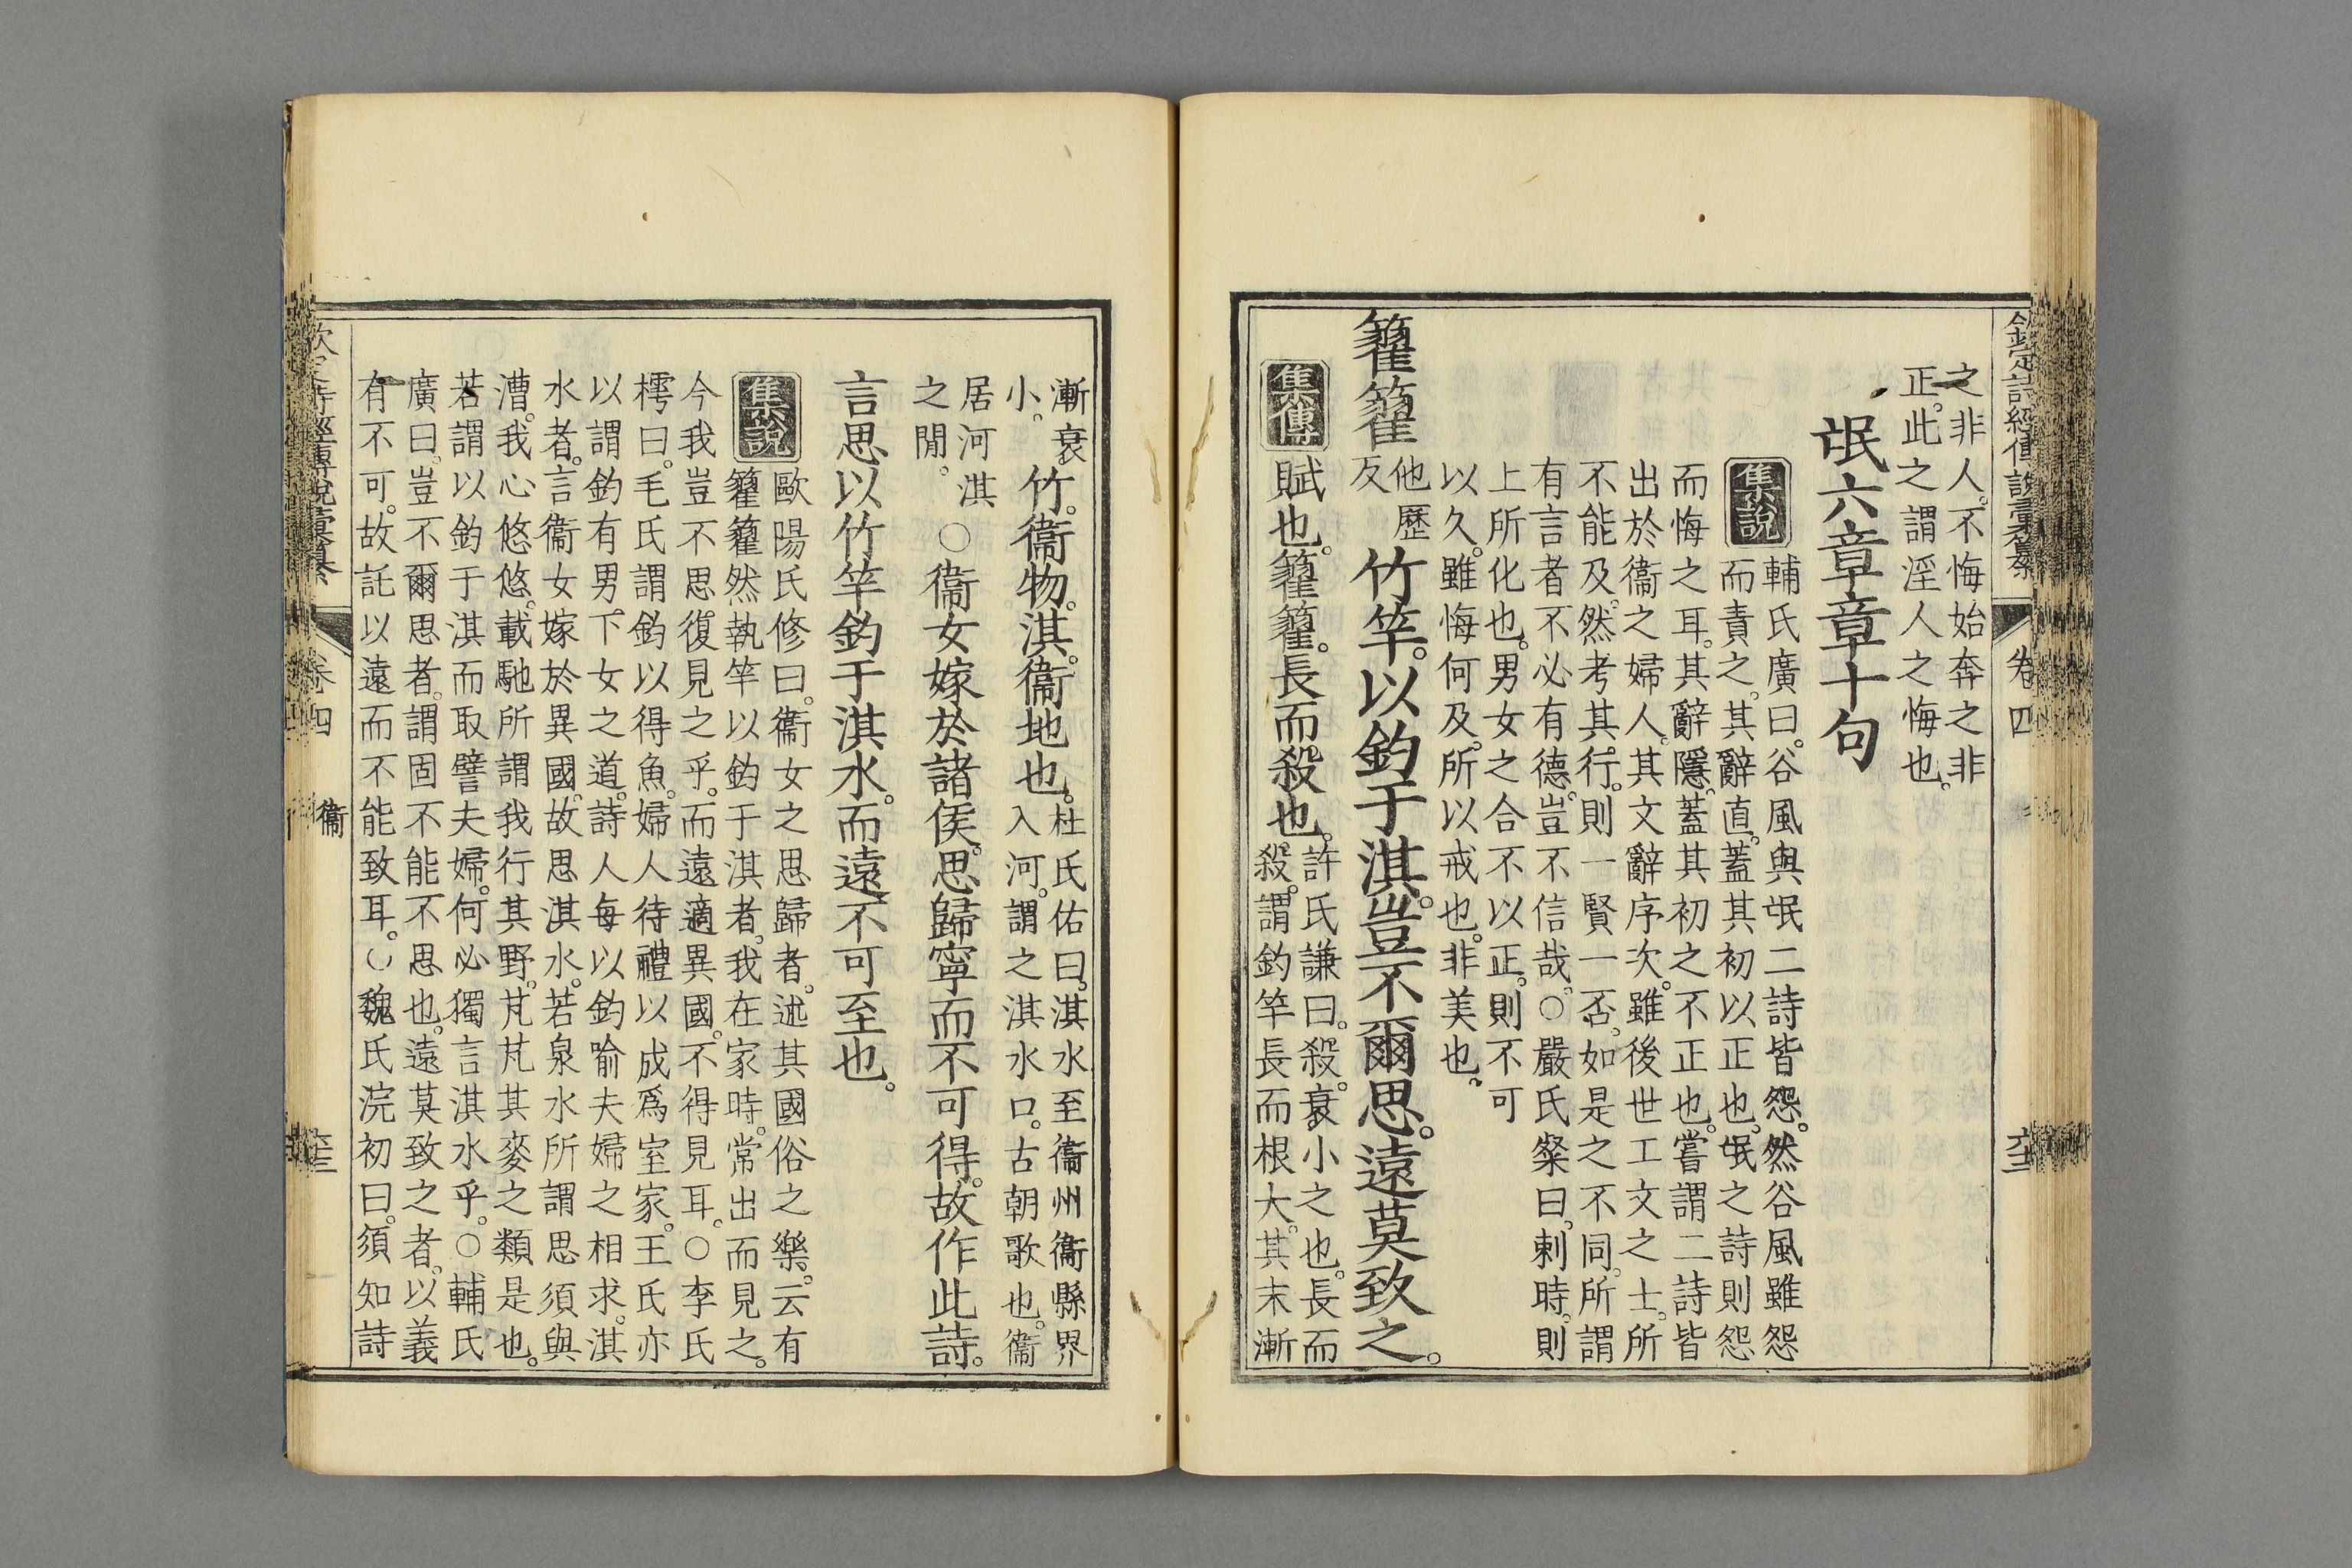 欽定詩經傳說彙纂 卷四 六三
之非人。不悔始奔之非
正。此之謂淫人之悔也。
氓六章章十句
集說
輔氏廣曰。谷風與氓二詩皆怨。然谷風雖怨
而責之。其辭直。蓋其初以正也。氓之詩則怨
而悔之耳。其辭隱。蓋其初之不正也。嘗謂二詩皆
出於衞之婦人。其文辭序次。雖後世工文之士。所
不能及。然考其行。則一賢一否。如是之不同。所謂
有言者不必有德。豈不信哉。○嚴氏粲曰。刺時。則
上所化也。男女之合不以正。則不可
以久。雖悔何及。所以戒也。非美也。
籊籊他歷反竹竿。以釣于淇。豈不爾思。遠莫致之。
集傳 賦也。籊籊。長而殺也。
許氏謙曰。殺。衰小之也。長而
殺。謂釣竿長而根大。其末漸
漸衰
小。
竹。衞物。淇。衞地也。
杜氏佑曰。淇水至衞州衞縣界
入河。謂之淇水口。古朝歌也。衞
居河淇
之閒。
○衞女嫁於諸侯。思歸寧而不可得。故作此詩。
言思以竹竿釣于淇水。而遠不可至也。
集說
歐陽氏修曰。衞女之思歸者。述其國俗之樂。云有
籊籊然執竿以釣于淇者。我在家時。常出而見之。
今我豈不思復見之乎。而遠適異國。不得見耳。○李氏
樗曰。毛氏謂釣以得魚。婦人待禮以成爲室家。王氏亦
以謂釣有男下女之道。詩人每以釣喻夫婦之相求。淇
水者。言衞女嫁於異國。故思淇水。若泉水所謂思須與
漕。我心悠悠。載馳所謂我行其野。芃芃其麥之類是也。
若謂以釣于淇而取譬夫婦。何必獨言淇水乎。○輔氏
廣曰。豈不爾思者。謂固不能不思也。遠莫致之者。以義
有不可。故託以遠而不能致耳。○魏氏浣初曰。須知詩
欽定詩經傳說彙纂 卷四 衞 六三